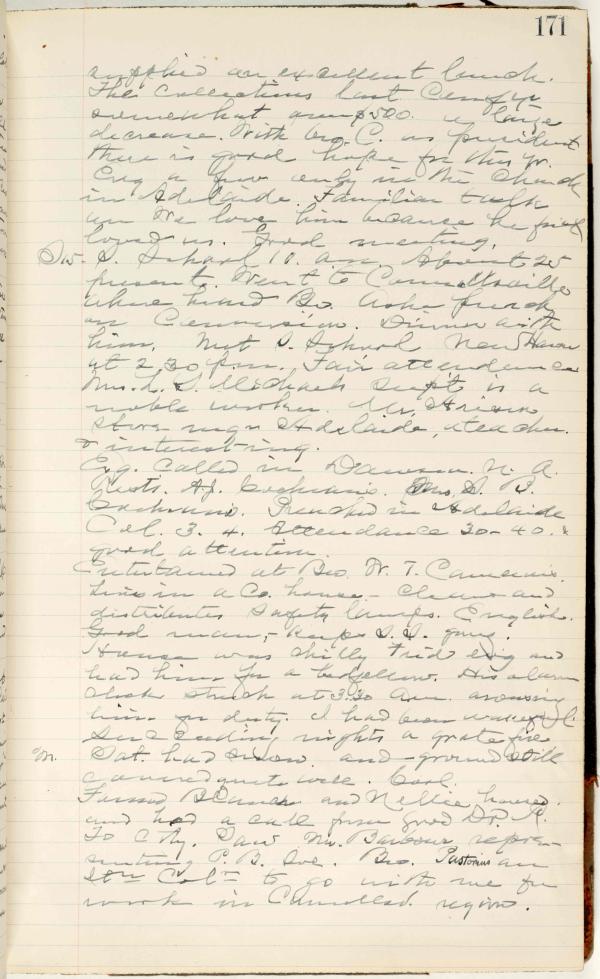 171
supplied an excellent lunch.
The collections last
somewhat over $500. a large
decrease. With Geo. C. as president
there is good hope for this yr.
Evg a few only in the church
in Adelaide. Familiar talk
on We love him because he first
loved us. Good meeting.
S. School 10. a.m. About 25
present. Went to Connellsville
where heard Bro. Asher preach
on Conversion. Dinner with
him. Met S. School New Haven
at 2.30 p.m. Fair attendance
Mrs. L. S. Michaels Supt is a
noble worker. Mr.
store mgr Adelaide, a teacher.
& interesting.
Evg. Called in Dawson. N. A.
A.J. Cochrans. Mrs. B.
Cochrans. Preached in Adelaide
Col. 3. 4. Attendance 30-40. &
good attention.
Entertained at Bro. W. T.
Lives in a Co. house - cleans and
distributes safety lamps. English.
Good man, - keeps S.S. going.
House was chilly and
had him for a bedfellow. His alarm
clock struck at 3.30 a.m. arousing
him for duty. I had been
Succeeding nights a grate fire
M. Sat. had snow. and ground still
covered quite well. Cool.
Found Blanche and Nellie
and had a call from good Dr.
To City. Saw Mr. Barbour, repre-
senting P. B. Bro. Pastorius an
to go with me for
work in region.